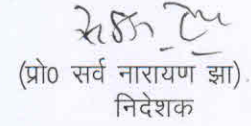 (प्रो० सर्व नारायण झा)
निदेशक